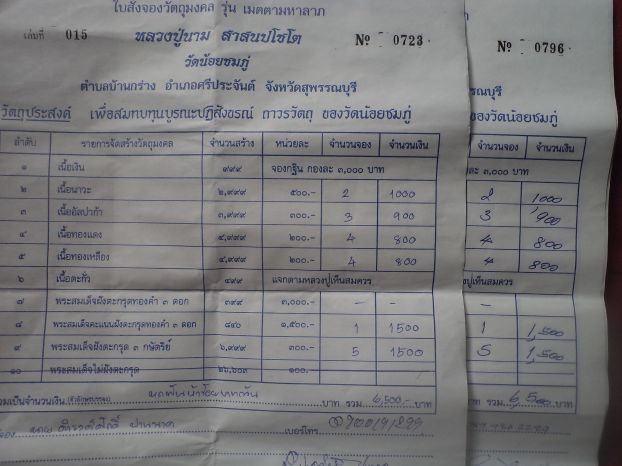 ใบสั่งจองวัตถุมงคล รุ่น เมตตามหาลาภ
เล่มที่ 015 หลวงปู่นาม สาสนปโชโต № 0723
วัดน้อยชมภู่
ตำบลบ้านกร่าง อำเภอศรีประจันต์ จังหวัดสุพรรณบุรี
วัตถุประสงค์ เพื่อสมทบทุนบูรณะปฏิสังขรณ์ ถาวรวัตถุ ของวัดน้อยชมภู่
ลำดับ รายการจัดสร้างวัตถุมงคล จำนวนสร้าง หน่วยละ จำนวนจอง จำนวนเงิน
๑ เนื้อเงิน ๙๙๙ จองกฐิน กองละ ๓,๐๐๐ บาท
๒ เนื้อนาวะ ๒,๙๙๙ ๕๐๐.- 2 1000
๓ เนื้ออัลปาก้า ๓,๙๙๙ ๓๐๐.- 3 900
๔ เนื้อทองแดง ๕,๙๙๙ ๒๐๐.- 4 800
๕ เนื้อทองเหลือง ๔,๙๙๙ ๒๐๐.- 4 800
๖ เนื้อตะกั่ว ๔๙๙ แจกตามหลวงปู่เห็นสมควร
๗ พระสมเด็จฝังตะกรุดทองคำ ๓ ดอก ๓๙๙ ๓,๐๐๐.- – –
๘ พระสมเด็จคะแนนฝังตะกรุดทองคำ ๓ ดอก ๘๔๐ ๑,๕๐๐.- 1 1500
๙ พระสมเด็จฝังตะกรุด ๓ กษัตริย์ ๖,๙๙๙ ๓๐๐.- 5 1500
๑๐ พระสมเด็จไม่ฝังตะกรุด ๑๐๐.-
รวมเป็นจำนวนเงิน (ตัวอักษร) หกพันห้าร้อยบาทถ้วน บาท รวม 6,500.- บาท
เบอร์โทร.
№ 0796
จังหวัดสุพรรณบุรี
ของวัดน้อยชมภู่
จำนวนจอง จำนวนเงิน
ละ ๓,๐๐๐ บาท
2 1000
3 900
4 800
4 800
ปู่เห็นสมควร
– –
1 1,500
5 1,500
บาท รวม 6,500.-